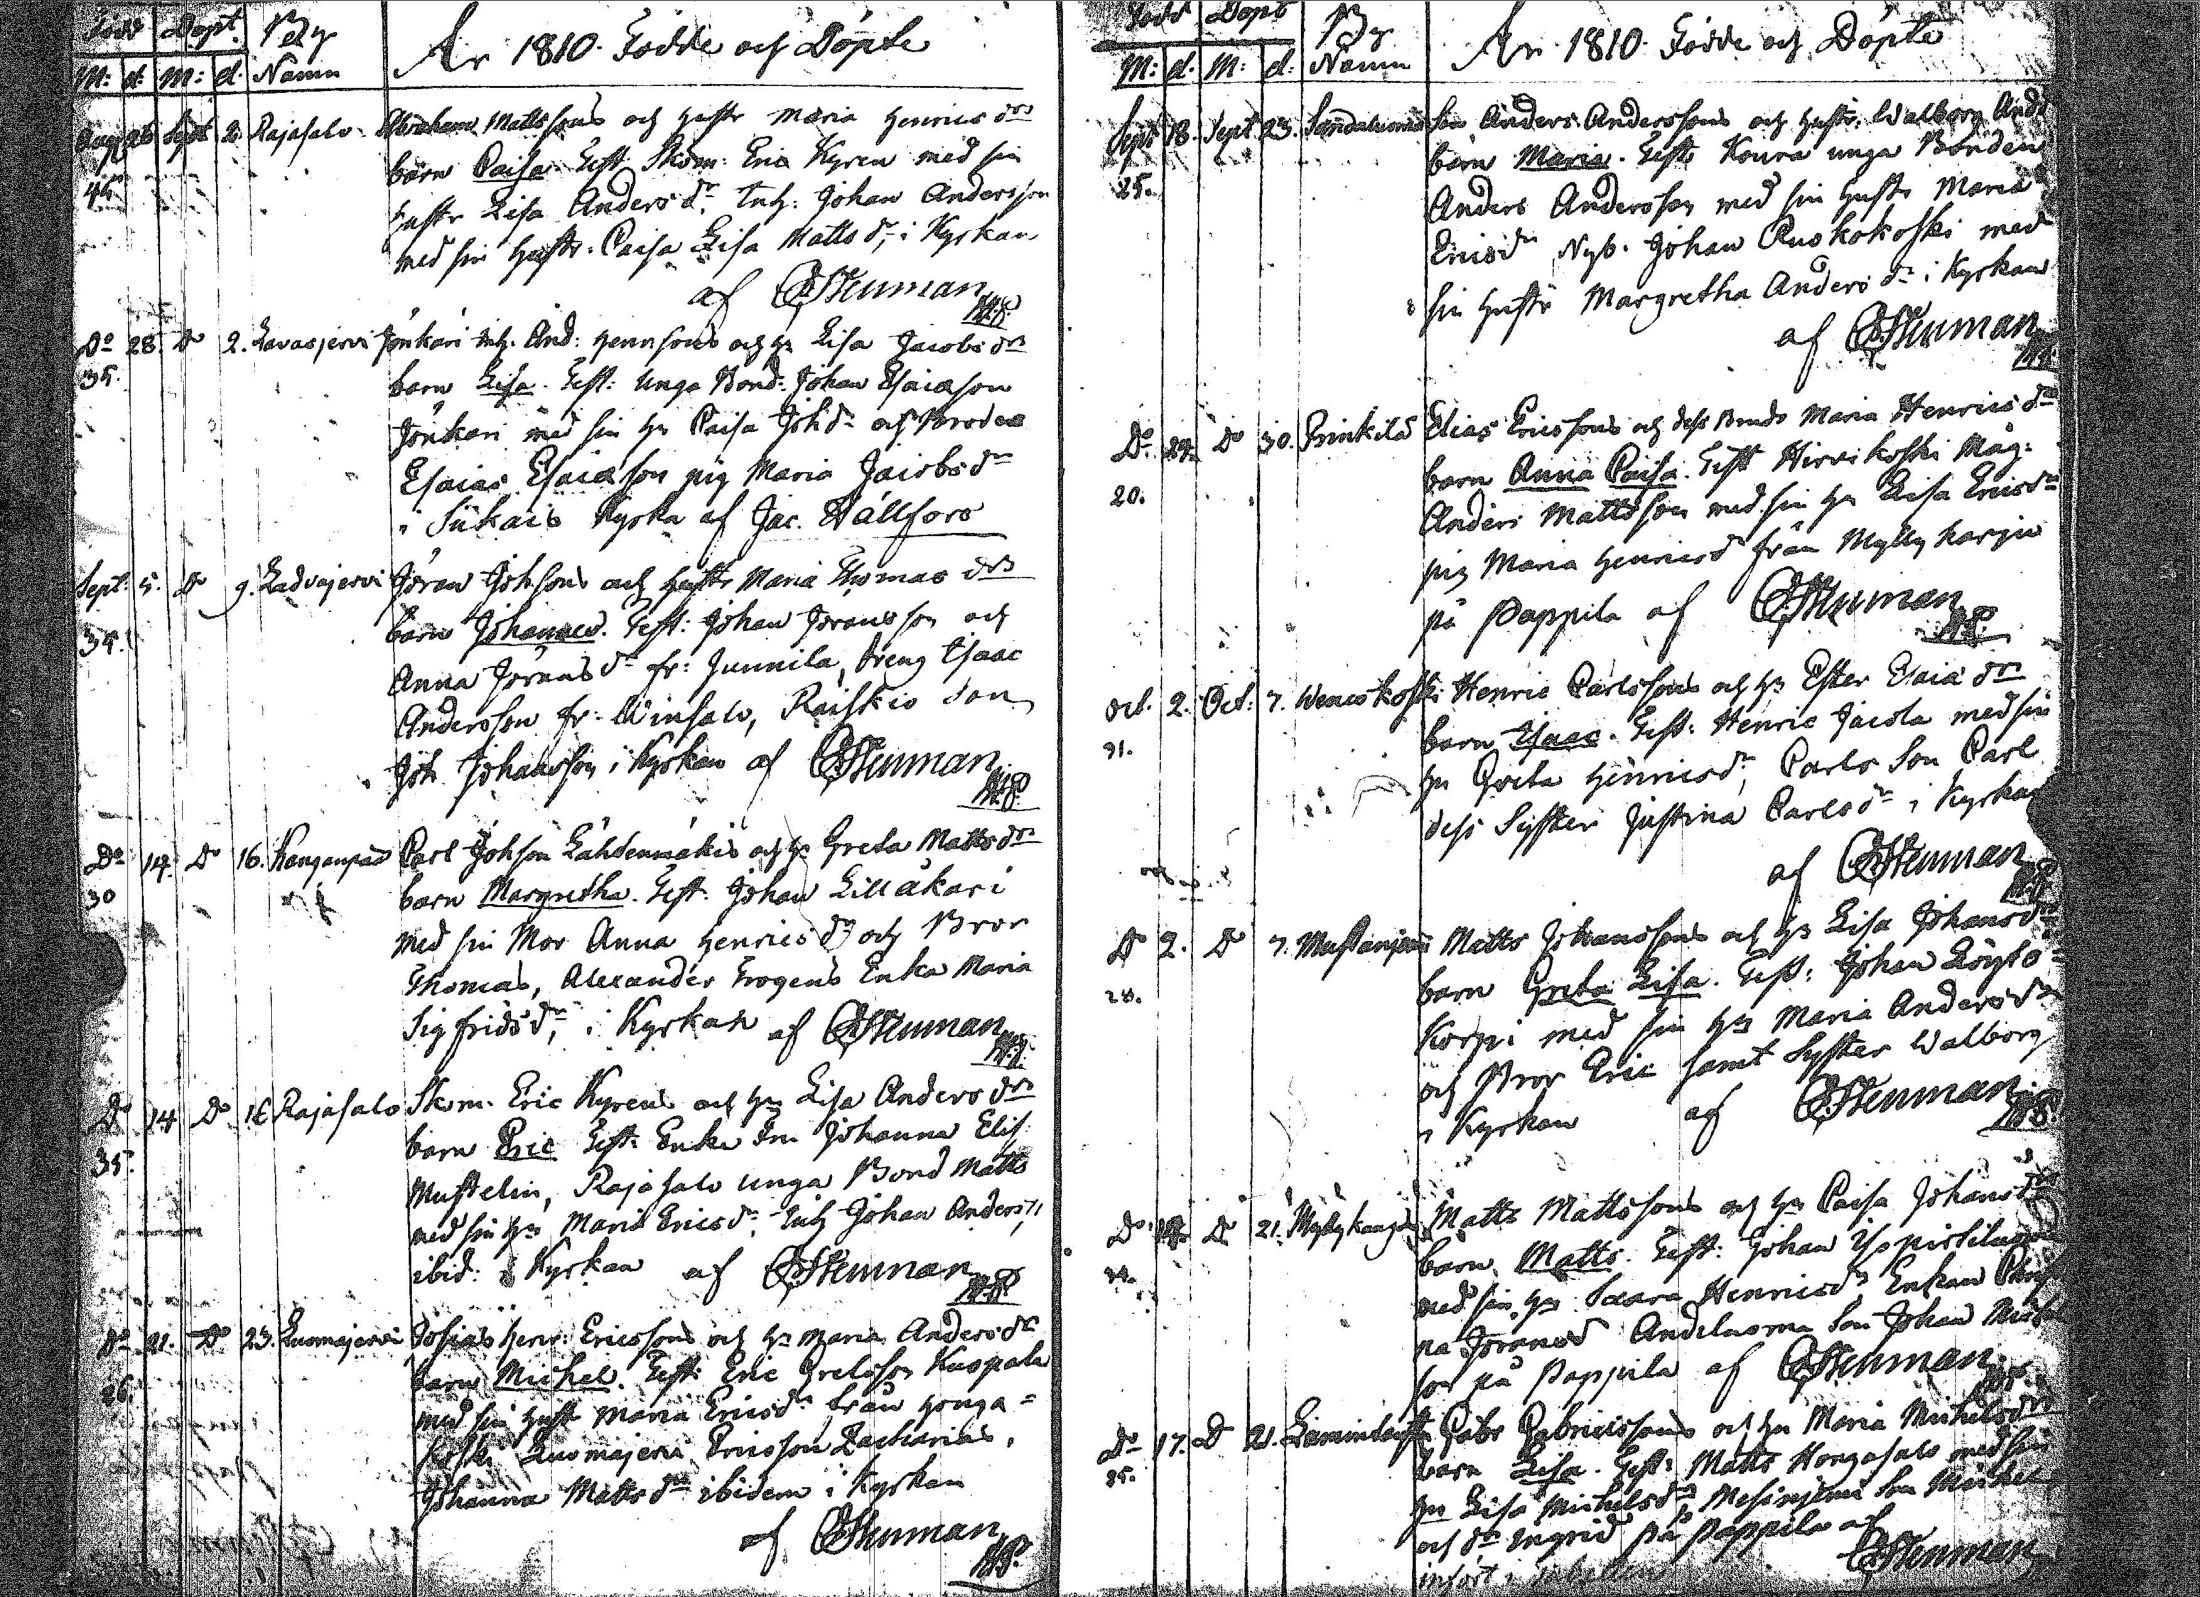 Född Döpt. By
M: d: M: d. Namn
År 1810. Födde och Döpte
Aug 26 Sept 2. Rajasalo Abraham Mattssons och hustr Maria Henricsdrs
46 barn Caisa. Test. Skom: Eric Kyren med sin
hustr Lisa Andersdr. Inh: Johan Andersson
med sin hustr. Caisa Lisa Mattsdr, i Kyrkan
af Stenman
Do 28. Do 2. Lavasjervi Jönkäri inh. And: Hennssons och hu Lisa Jacobsdrs
35. barn Lisa. Test: unga Bond: Johan Esaiasson
Jönkäri med sin hu Caisa Johdr och Broder
Esaias Esaiasson pig Maria Jacobsdr
i Siikais Kyrka af Jac. Hällfors
Sept. 5. Do 9. Ladvajervi Jöran Johssons och hustr Maria Thomasdrs
35. barn Johannes. Test: Johan Jöransson och
Anna Jöransdr fr: Junnila, Dreng Isaac
Andersson fr: Vinsalo, Raiskio son
Joh Johansson i Kyrkan af Stenman
Do 14. Do 16. Kangenpää Carl Johsson Lähdenmäkis och hu Greta Mattsdrs
30 barn Margretha. Test: Johan Lilläkari
med sin Mor Anna Henricsdr och Bror
Thomas, Alexander Frogens Enka Maria
Sigfridsdr, i Kyrkan af Stenman
Do 14 Do 16 Rajasalo Skom. Eric Kyrens och hu Lisa Andersdrs
35. barn Eric Test: Enke Fru Johanna Elis.
Mustelin, Rajasalo unga Bond Matts
med sin hu Maria Ericsdr. Inh Johan Anders
ibid: i Kyrkan af Stenman
Do 21. Do 23. Luomajervi Josias Henr: Ericssons och hu Maria Andersdr
26. barn Michel. Test: Eric Grelsson Kuopala
med sin hustr Maria Ericsdr från Honga=
koski Luomajervi Ericsson Zacharias,
Johanna Mattsdr ibidem i Kyrkan
af Stenman
Född Döpt By
M: d. M: d: Namn
År 1810. Födde och Döpte
Sept 18. Sept 23. Sandaluoma Son Anders Anderssons och hustr. Walborg Andr
25. barn Maria. Test: Koura unga Bonden
Anders Andersson med sin hustr Maria
Ericsdr Nyb. Johan Ruokokoski med
sin hustr Margretha Andersdr i Kyrkan
af Stenman
Do Do 30. Prinkilä Elias Ericssons och dess Brud Maria Henricsdrs
20. barn Anna Caisa. Test Hirvikoski Måg:
Anders Mattsson med sin hu Lisa Ericsdr
pig Maria Henricsdr från Myllyharju
på Pappila af Stenman
Oct. 2. Oct: 7. Weneskoski Henric Carlssons och hu Ester Esaiædrs
31. barn Isaac. Test: Henric Jacola med sin
hu Greta Henricsdr, Carls Son Carl
dess Syster Justina Carlsdr i Kyrkan
af Stenman
Do 2. Do 7. Mustanjervi Matts Johanssons och hu Lisa Johansdrs
28. barn Greta Lisa. Test: Johan Löytö=
korpi med sin hu Maria Andersdr
och Bror Eric samt Syster Walborg
i Kyrkan af Stenman
Do Do 21. Myllykangas Matts Mattssons och hu Caisa Johansdrs
barn Matts. Test: Johan
med sin hu Saara Henricsdr Enkan
Jöransd Andeluoma Son Johan
son på Pappila af Stenman
Do 17. Do 21. Gabr Gabrielssons och hu Maria Michelsdrs
35. barn Lisa. Test: Matts Hongasalo med sin
hu Lisa Michelsdr, Mesinjervi Son Michel
och dr Ingrid på Pappila af
Stenman
infört i